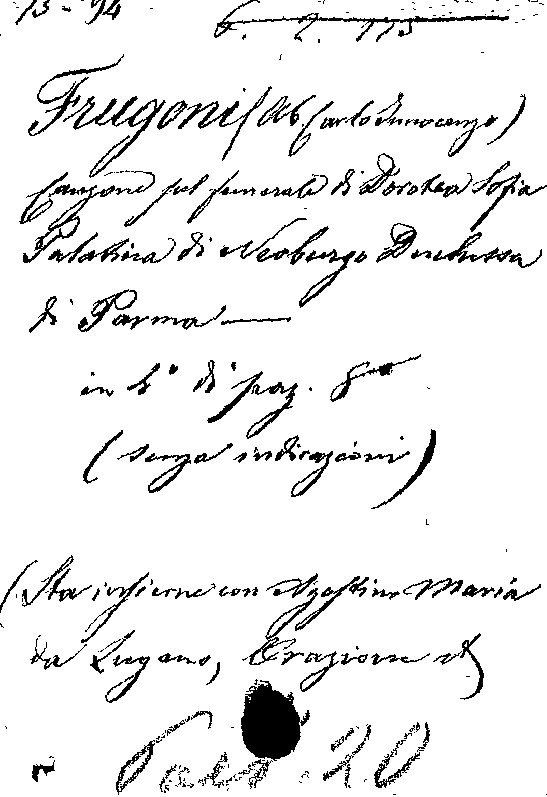 13-94
6. 2. 113
Frugoni (Ab. Carlo Innocenzo)
Canzone sul funerale di Dorotea Sofia
Palatina di Neoburgo Duchessa
di Parma —
in 4° di pag. 8
(senza indicazioni)
(Sta insieme con Agostino Maria
da Lugano, Orazione etc)
20